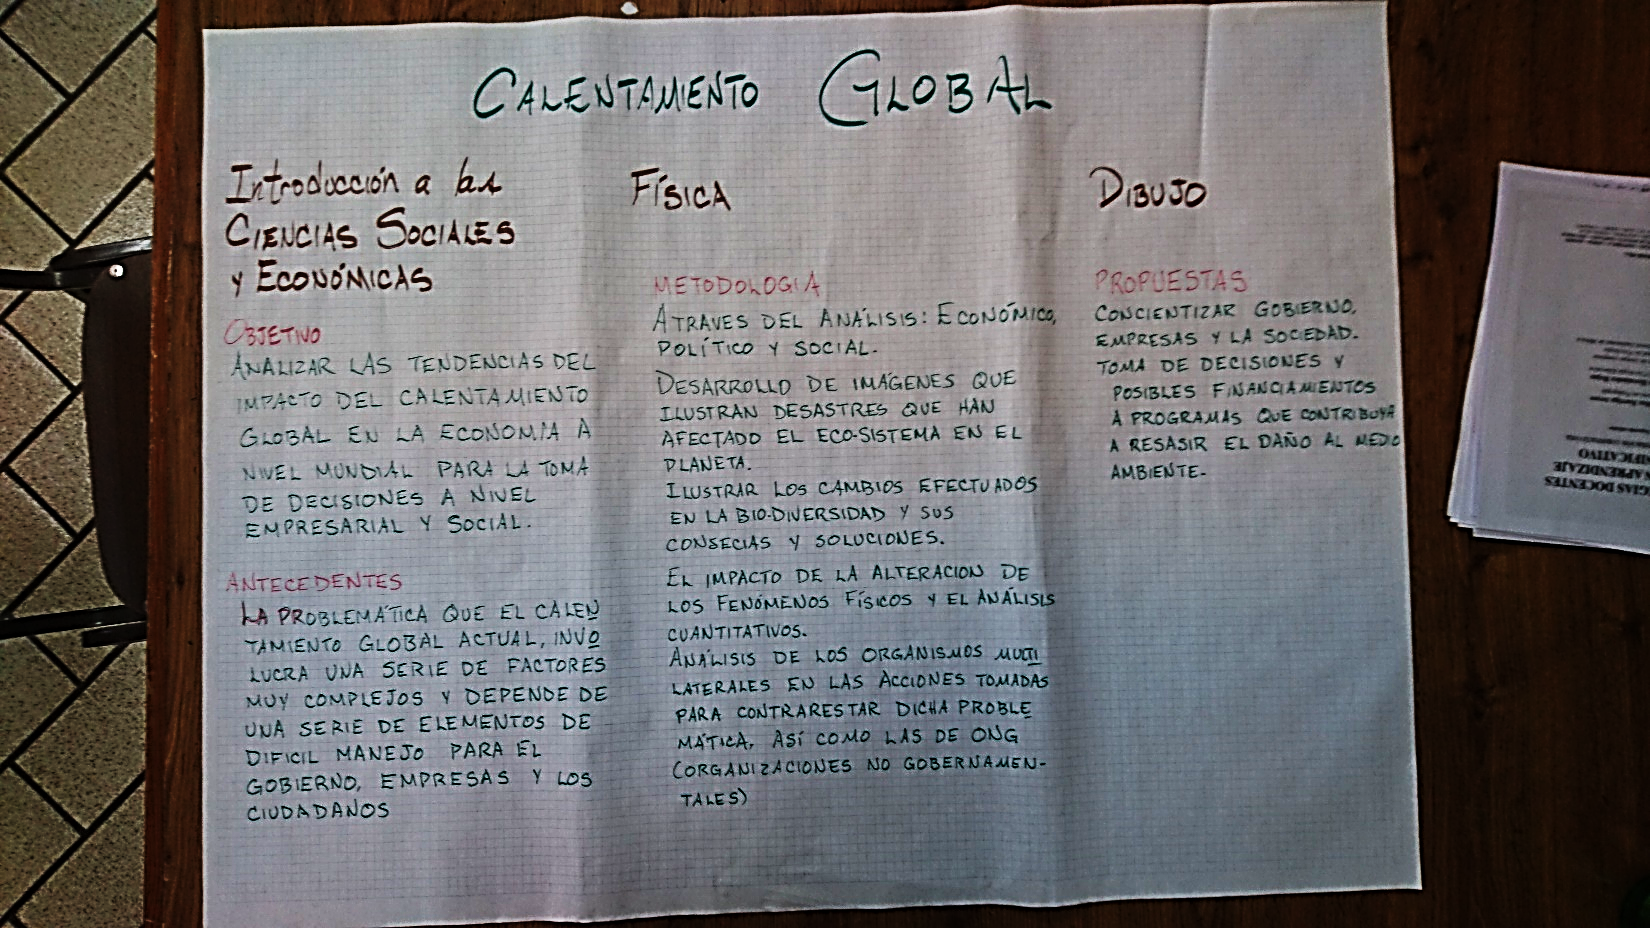 CALENTAMIENTO GLOBAL
Introducción a las
CIENCIAS SOCIALES
Y ECONÓMICAS
OBJETIVO
ANALIZAR LAS TENDENCIAS DEL
IMPACTO DEL CALENTAMIENTO
GLOBAL EN LA ECONOMIA A
NIVEL MUNDIAL PARA LA TOMA
DE DECISIONES A NIVEL
EMPRESARIAL Y SOCIAL.
ANTECEDENTES
LA PROBLEMÁTICA QUE EL CALEN
TAMIENTO GLOBAL ACTUAL, INVO
LUCRA UNA SERIE DE FACTORES
MUY COMPLEJOS Y DEPENDE DE
UNA SERIE DE ELEMENTOS DE
DIFICIL MANEJO PARA EL
GOBIERNO, EMPRESAS Y LOS
CIUDADANOS
FÍSICA
METODOLOGIA
ATRAVES DEL ANÁLISIS: ECONÓMICO,
POLÍTICO Y SOCIAL.
DESARROLLO DE IMÁGENES QUE
ILUSTRAN DESASTRES QUE HAN
AFECTADO EL ECO-SISTEMA EN EL
PLANETA.
ILUSTRAR LOS CAMBIOS EFECTUADOS
EN LA BIO-DIVERSIDAD Y SUS
CONSECIAS Y SOLUCIONES.
EL IMPACTO DE LA ALTERACION DE
LOS FENÓMENOS FÍSICOS Y EL ANÁLISIS
CUANTITATIVOS.
ANÁLISIS DE LOS ORGANISMOS MULTI
LATERALES EN LAS ACCIONES TOMADAS
PARA CONTRARESTAR DICHA PROBLE
MÁTICA, ASÍ COMO LAS DE ONG
(ORGANIZACIONES NO GOBERNAMEN-
TALES)
DIBUJO
PROPUESTAS
CONCIENTIZAR GOBIERNO,
EMPRESAS Y LA SOCIEDAD.
TOMA DE DECISIONES Y
POSIBLES FINANCIAMIENTOS
A PROGRAMAS QUE CONTRIBUYA
A RESASIR EL DAÑO AL MEDIO
AMBIENTE.
GIAS DOCENTES
APRENDIZAJE
NIFICATIVO